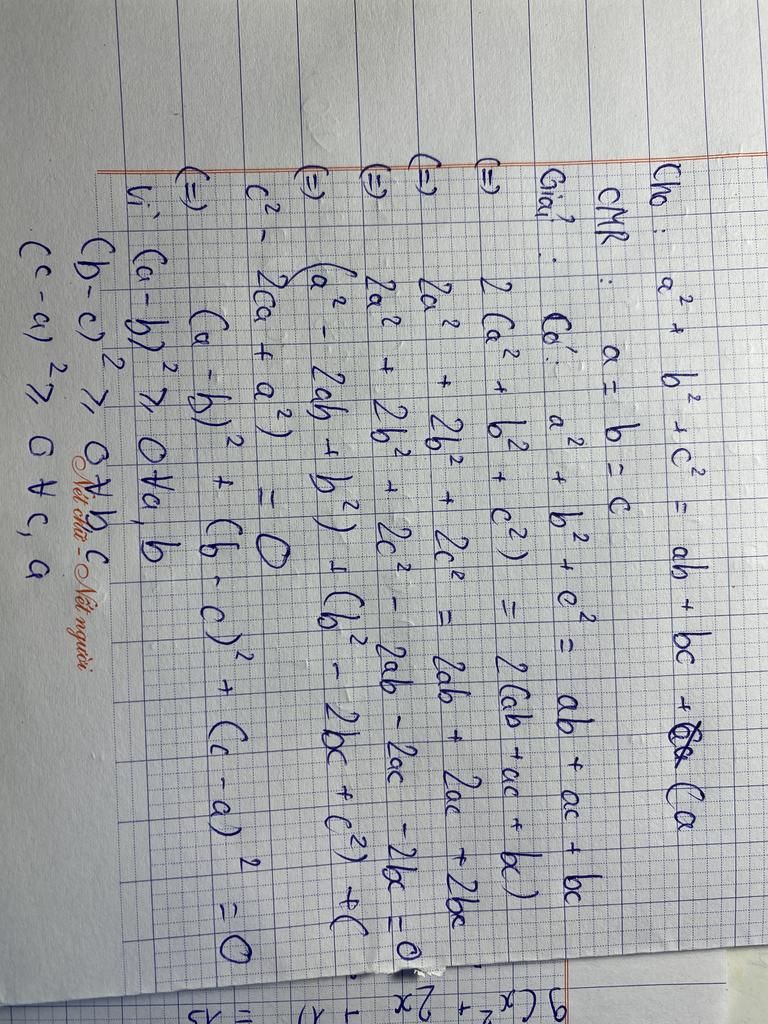 Cho : a² + b² + c² = ab + bc + ca
CMR : a = b = c
Giải : Có : a² + b² + c² = ab + ac + bc
(=) 2(a² + b² + c²) = 2(ab + ac + bc)
(=) 2a² + 2b² + 2c² = 2ab + 2ac + 2bc
(=) 2a² + 2b² + 2c² - 2ab - 2ac - 2bc = 0
(=) (a² - 2ab + b²) + (b² - 2bc + c²) + (
c² - 2ca + a²) = 0
(=) (a - b)² + (b - c)² + (c - a)² = 0
Vì (a - b)² ≥ 0 ∀ a, b
(b - c)² ≥ 0 ∀ b, c
Nét chữ - Nết người
(c - a)² ≥ 0 ∀ c, a